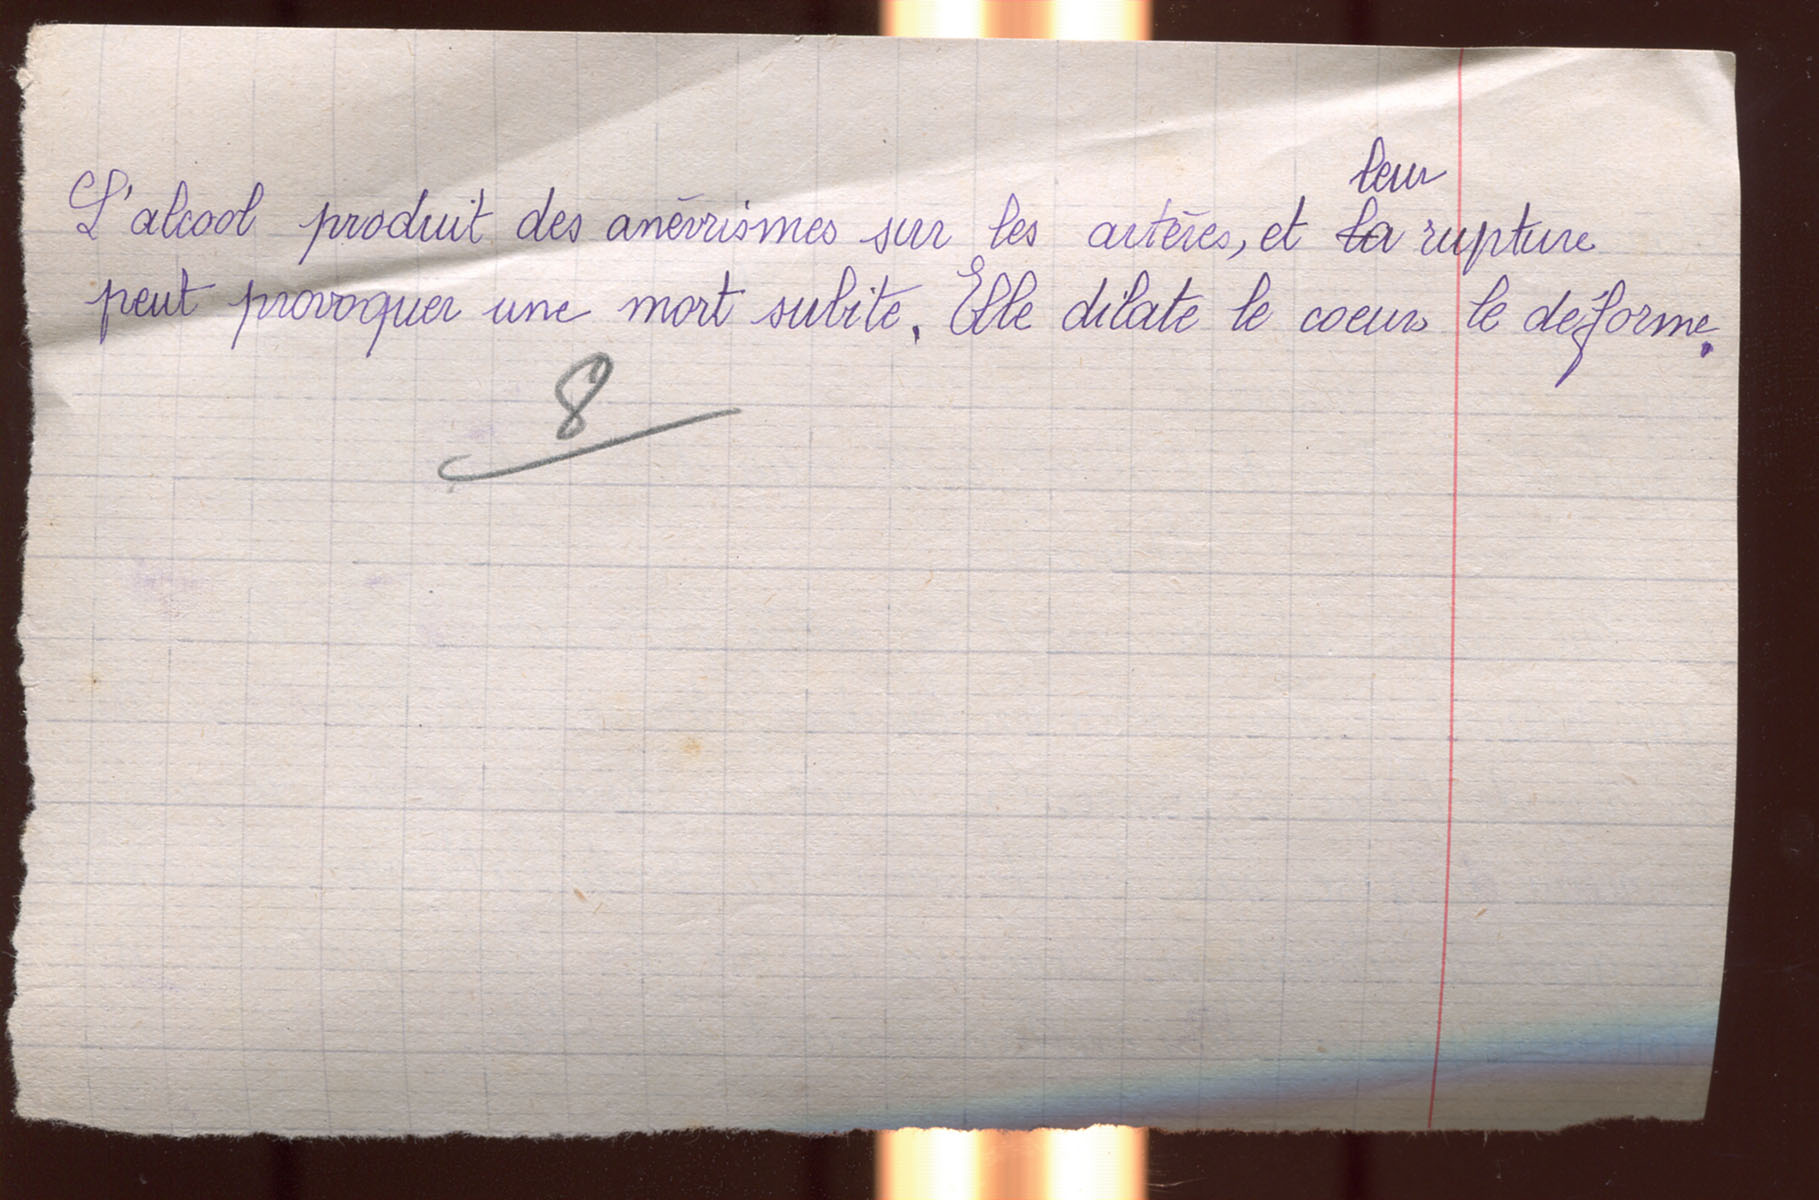 L'alcool produit des anévrismes sur les artères, et ~~la~~ leur rupture
peut provoquer une mort subite. Elle dilate le coeur le déforme.
8